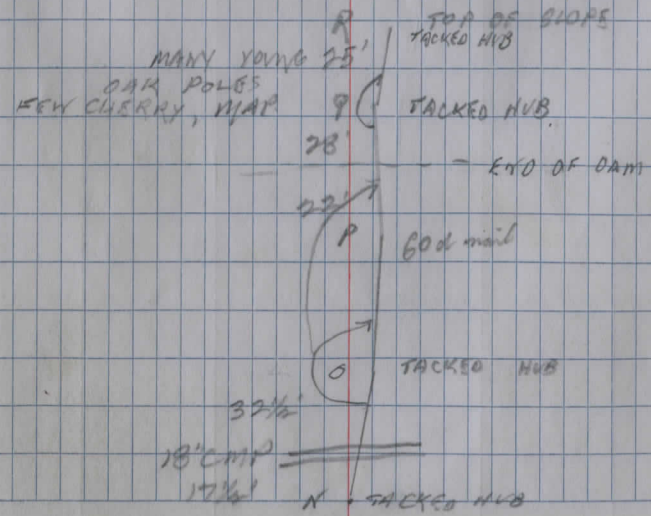 R TOP OF SLOPE
TACKED HUB
MANY YOUNG 25'
OAK POLES
FEW CHERRY, MAP. Q TACKED HUB
28'
END OF DAM
22'
P 60d nail
O TACKED HUB
32½'
18" CMP
17½'
N TACKED HUB